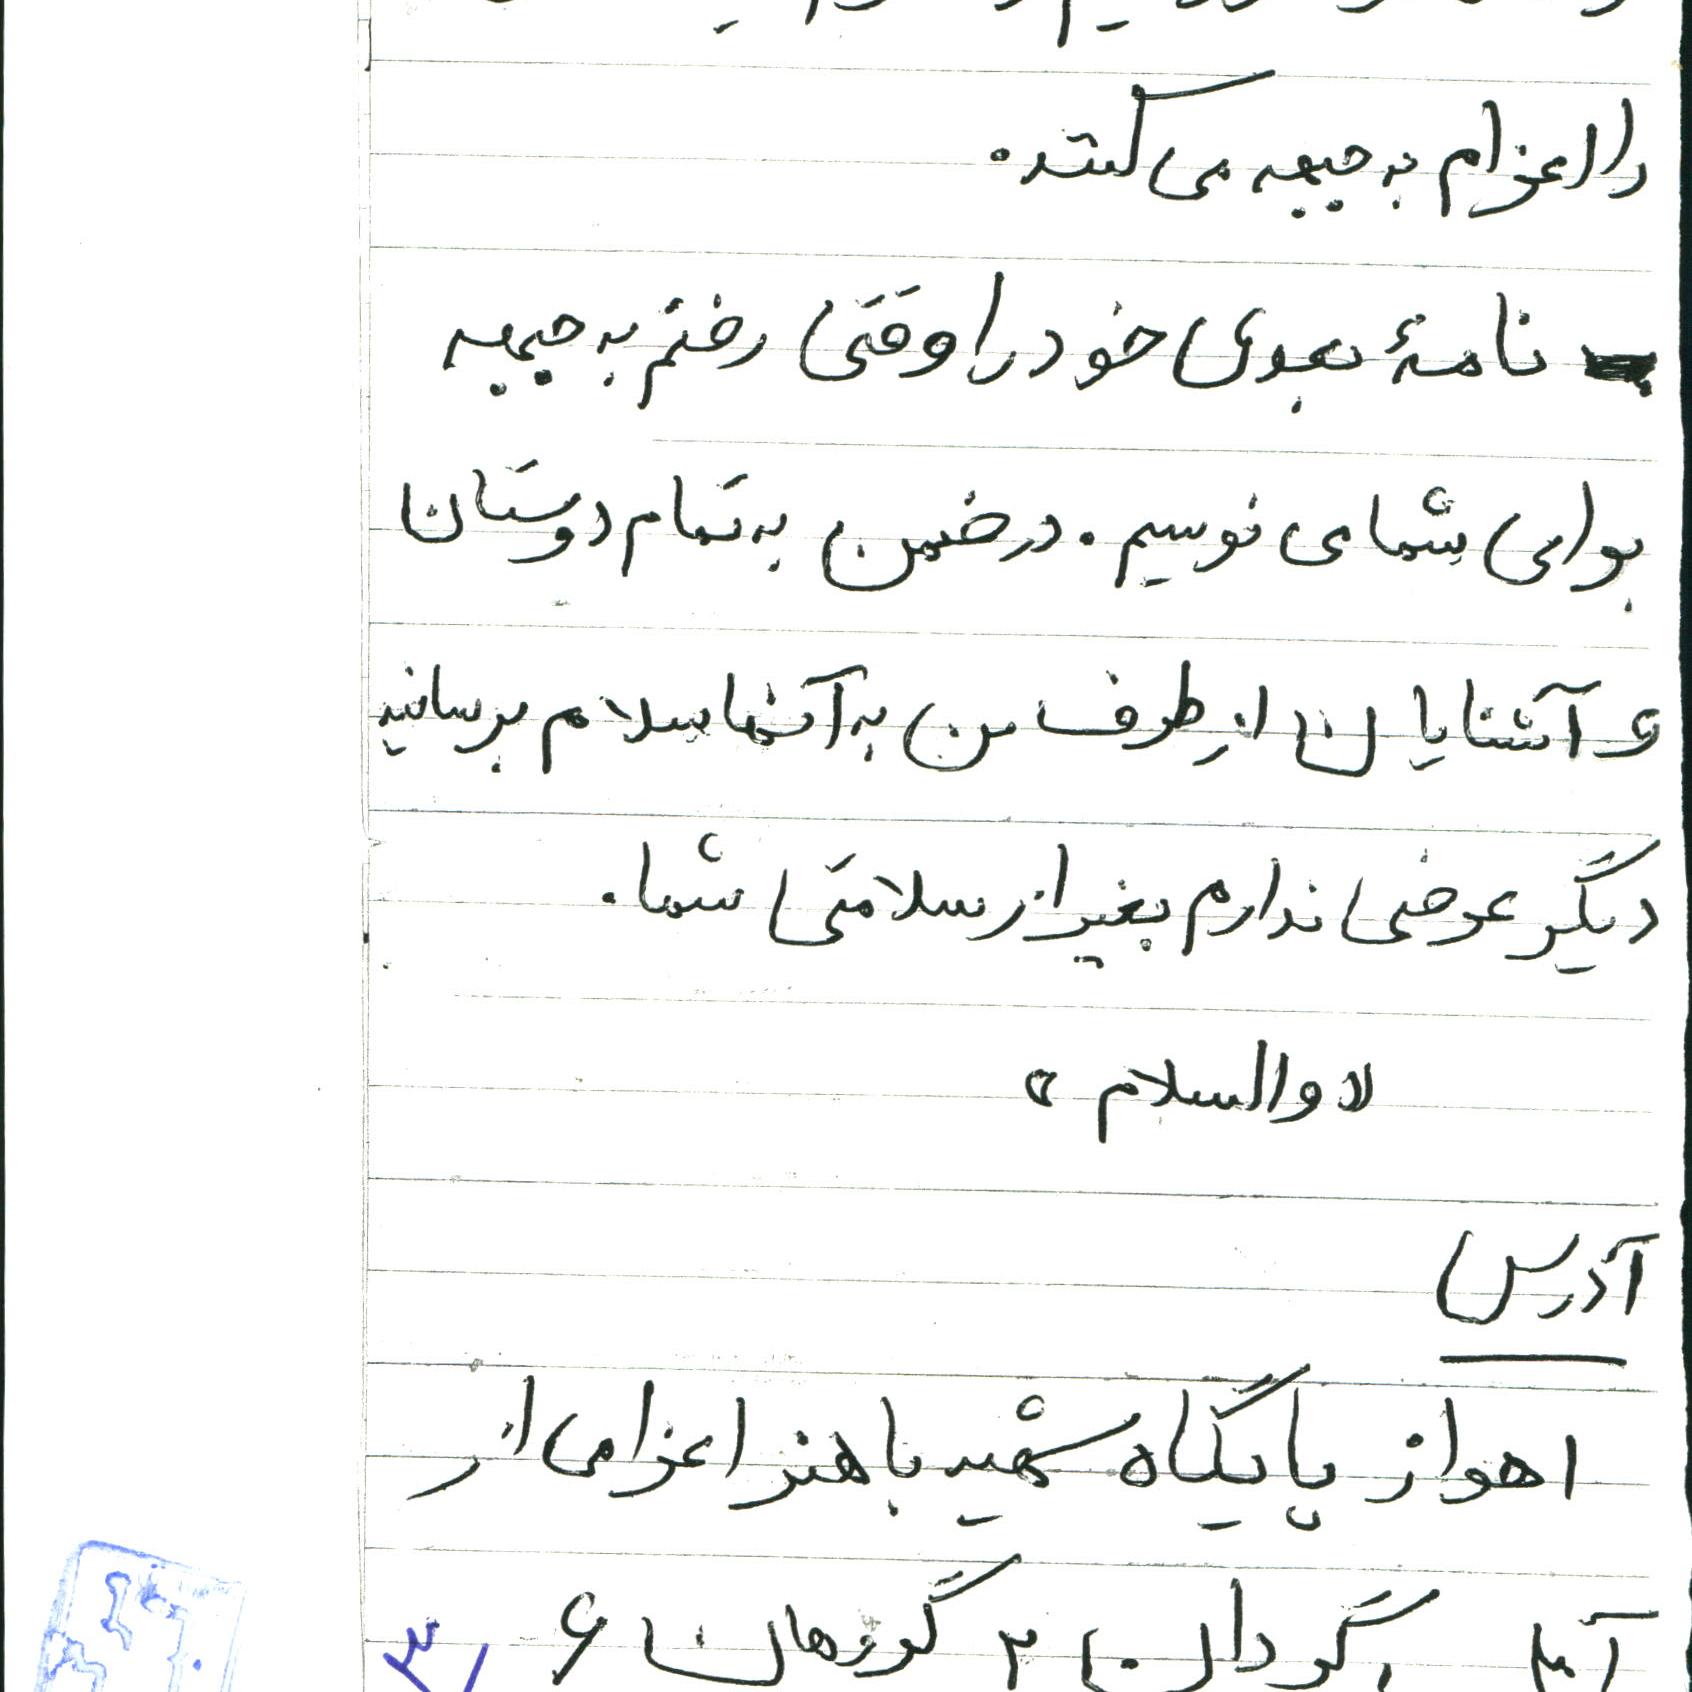 را اعزام به جبهه می کنند.
نامهٔ بعدی خود را وقتی رفتم به جبهه
برای شما می نویسیم. در ضمن به تمام دوستان
و آشنایان از طرف من به آنها سلام برسانید
دیگر عرضی ندارم بغیر از سلامتی شما.
« والسلام »
آدرس
اهواز پایگاه شهید باهنر اعزامی از
گردان ۲ گروهان ۶
۳